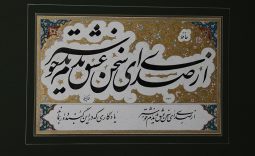 از صدای سخن عشق ندیدم خوشتر
از صدای سخن عشق ندیدم خوشتر
یادگاری که در این گنبد دوار بماند